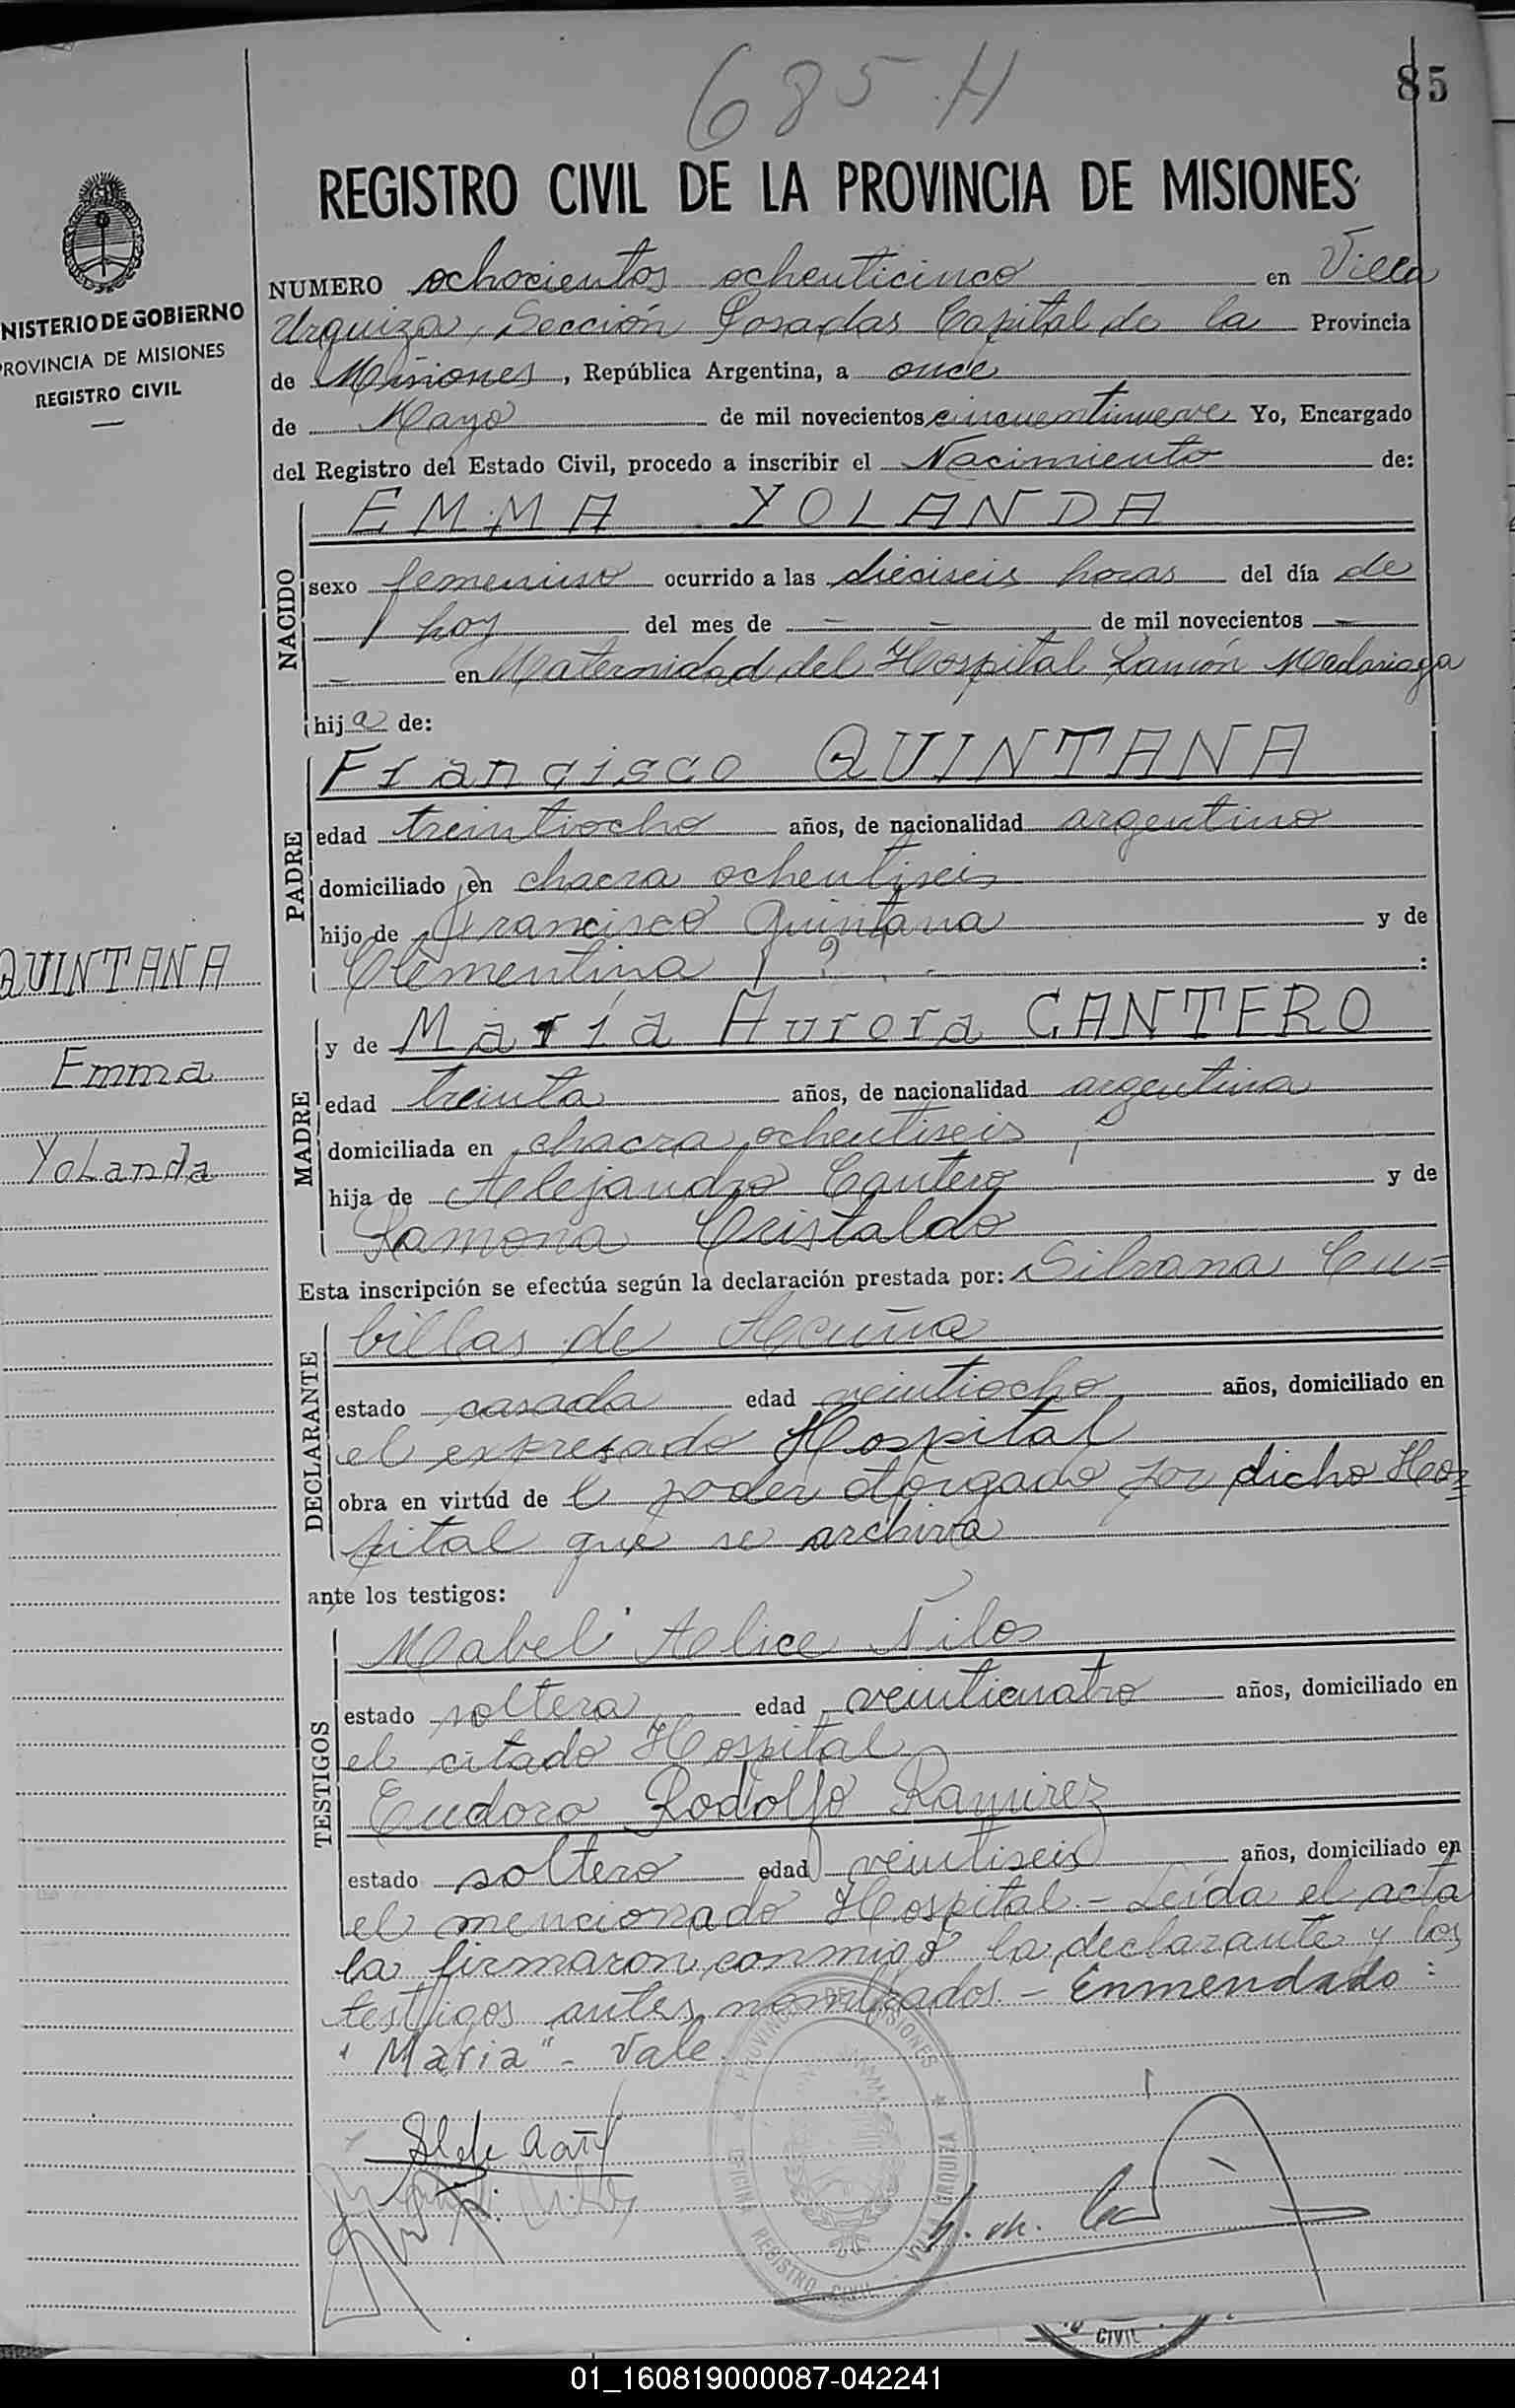 685 H
85
REGISTRO CIVIL DE LA PROVINCIA DE MISIONES
NISTERIO DE GOBIERNO
PROVINCIA DE MISIONES
REGISTRO CIVIL
NUMERO ochocientos ochenticinco en Villa
Urquiza, Sección Posadas Capital de la Provincia
de Misiones, República Argentina, a once
de Mayo de mil novecientos cincuentinueve Yo, Encargado
del Registro del Estado Civil, procedo a inscribir el Nacimiento de:
NACIDO
EMMA YOLANDA
sexo femenino ocurrido a las dieciseis horas del día de
hoy del mes de — — de mil novecientos —
— en Maternidad del Hospital Ramón Madariaga
hija de:
PADRE
Francisco QUINTANA
edad treintiocho años, de nacionalidad argentino
domiciliado en chacra ochentiseis
hijo de Francisco Quintana y de
Clementina ?
QUINTANA
Emma
Yolanda
MADRE
y de María Aurora CANTERO
edad treinta años, de nacionalidad argentina
domiciliada en chacra ochentiseis
hija de Alejandro Cantero y de
Ramona Cristaldo
Esta inscripción se efectúa según la declaración prestada por: Silvana Cu=
DECLARANTE
billas de Acuña
estado casada edad veintiocho años, domiciliado en
el expresado Hospital
obra en virtud de l poder otorgado por dicho Hos=
pital que se archiva
ante los testigos:
TESTIGOS
Mabel Alice Nilos
estado soltera edad veinticuatro años, domiciliado en
el citado Hospital
Eudoro Rodolfo Ramirez
estado soltero edad veintiseis años, domiciliado en
el mencionado Hospital.- Leída el acta
la firmaron conmigo la declarante y los
testigos antes nombrados.- Enmendado:
"Maria"- Vale.
PROVINCIA DE MISIONES
OFICINA REGISTRO CIVIL VILLA URQUIZA
CIVIL
01_160819000087-042241